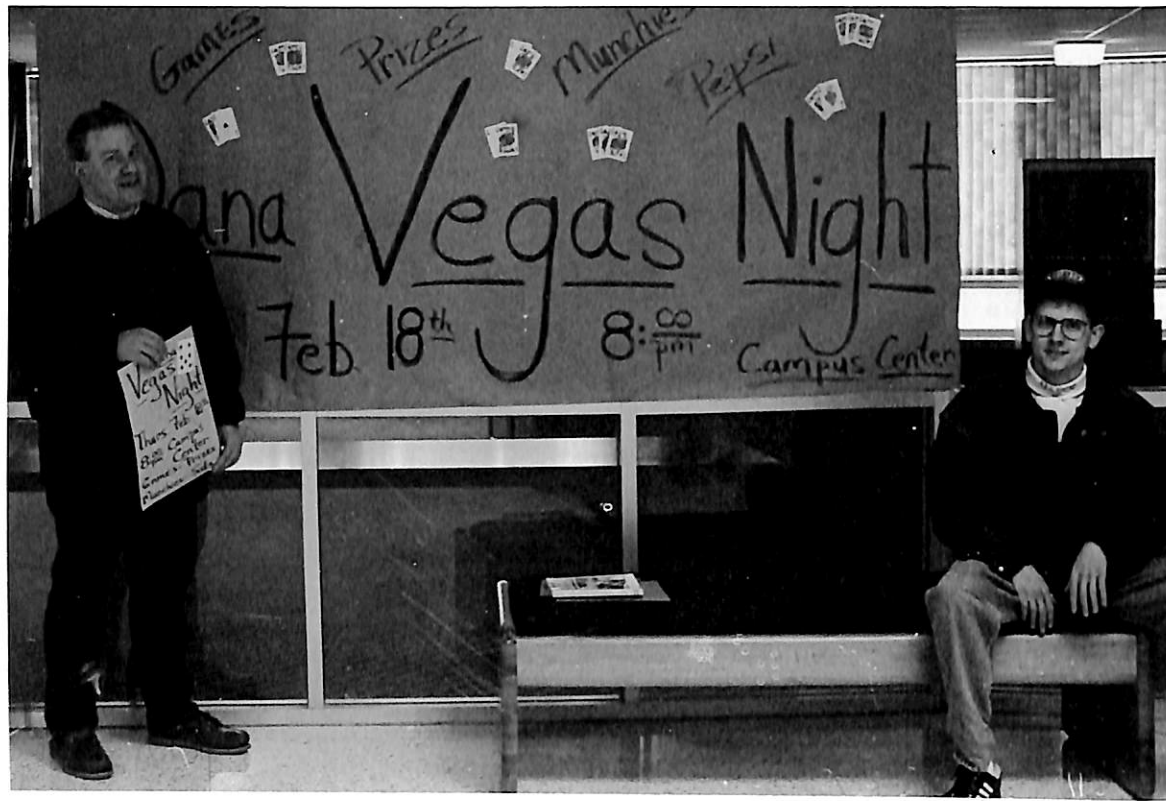 Games Prizes Munchies Pepsi
Dana Vegas Night
Feb 18th 8:00 pm Campus Center
Vegas
Night
Thurs Feb 18th
8:00 pm Campus
Center
Games Prizes
Munchies